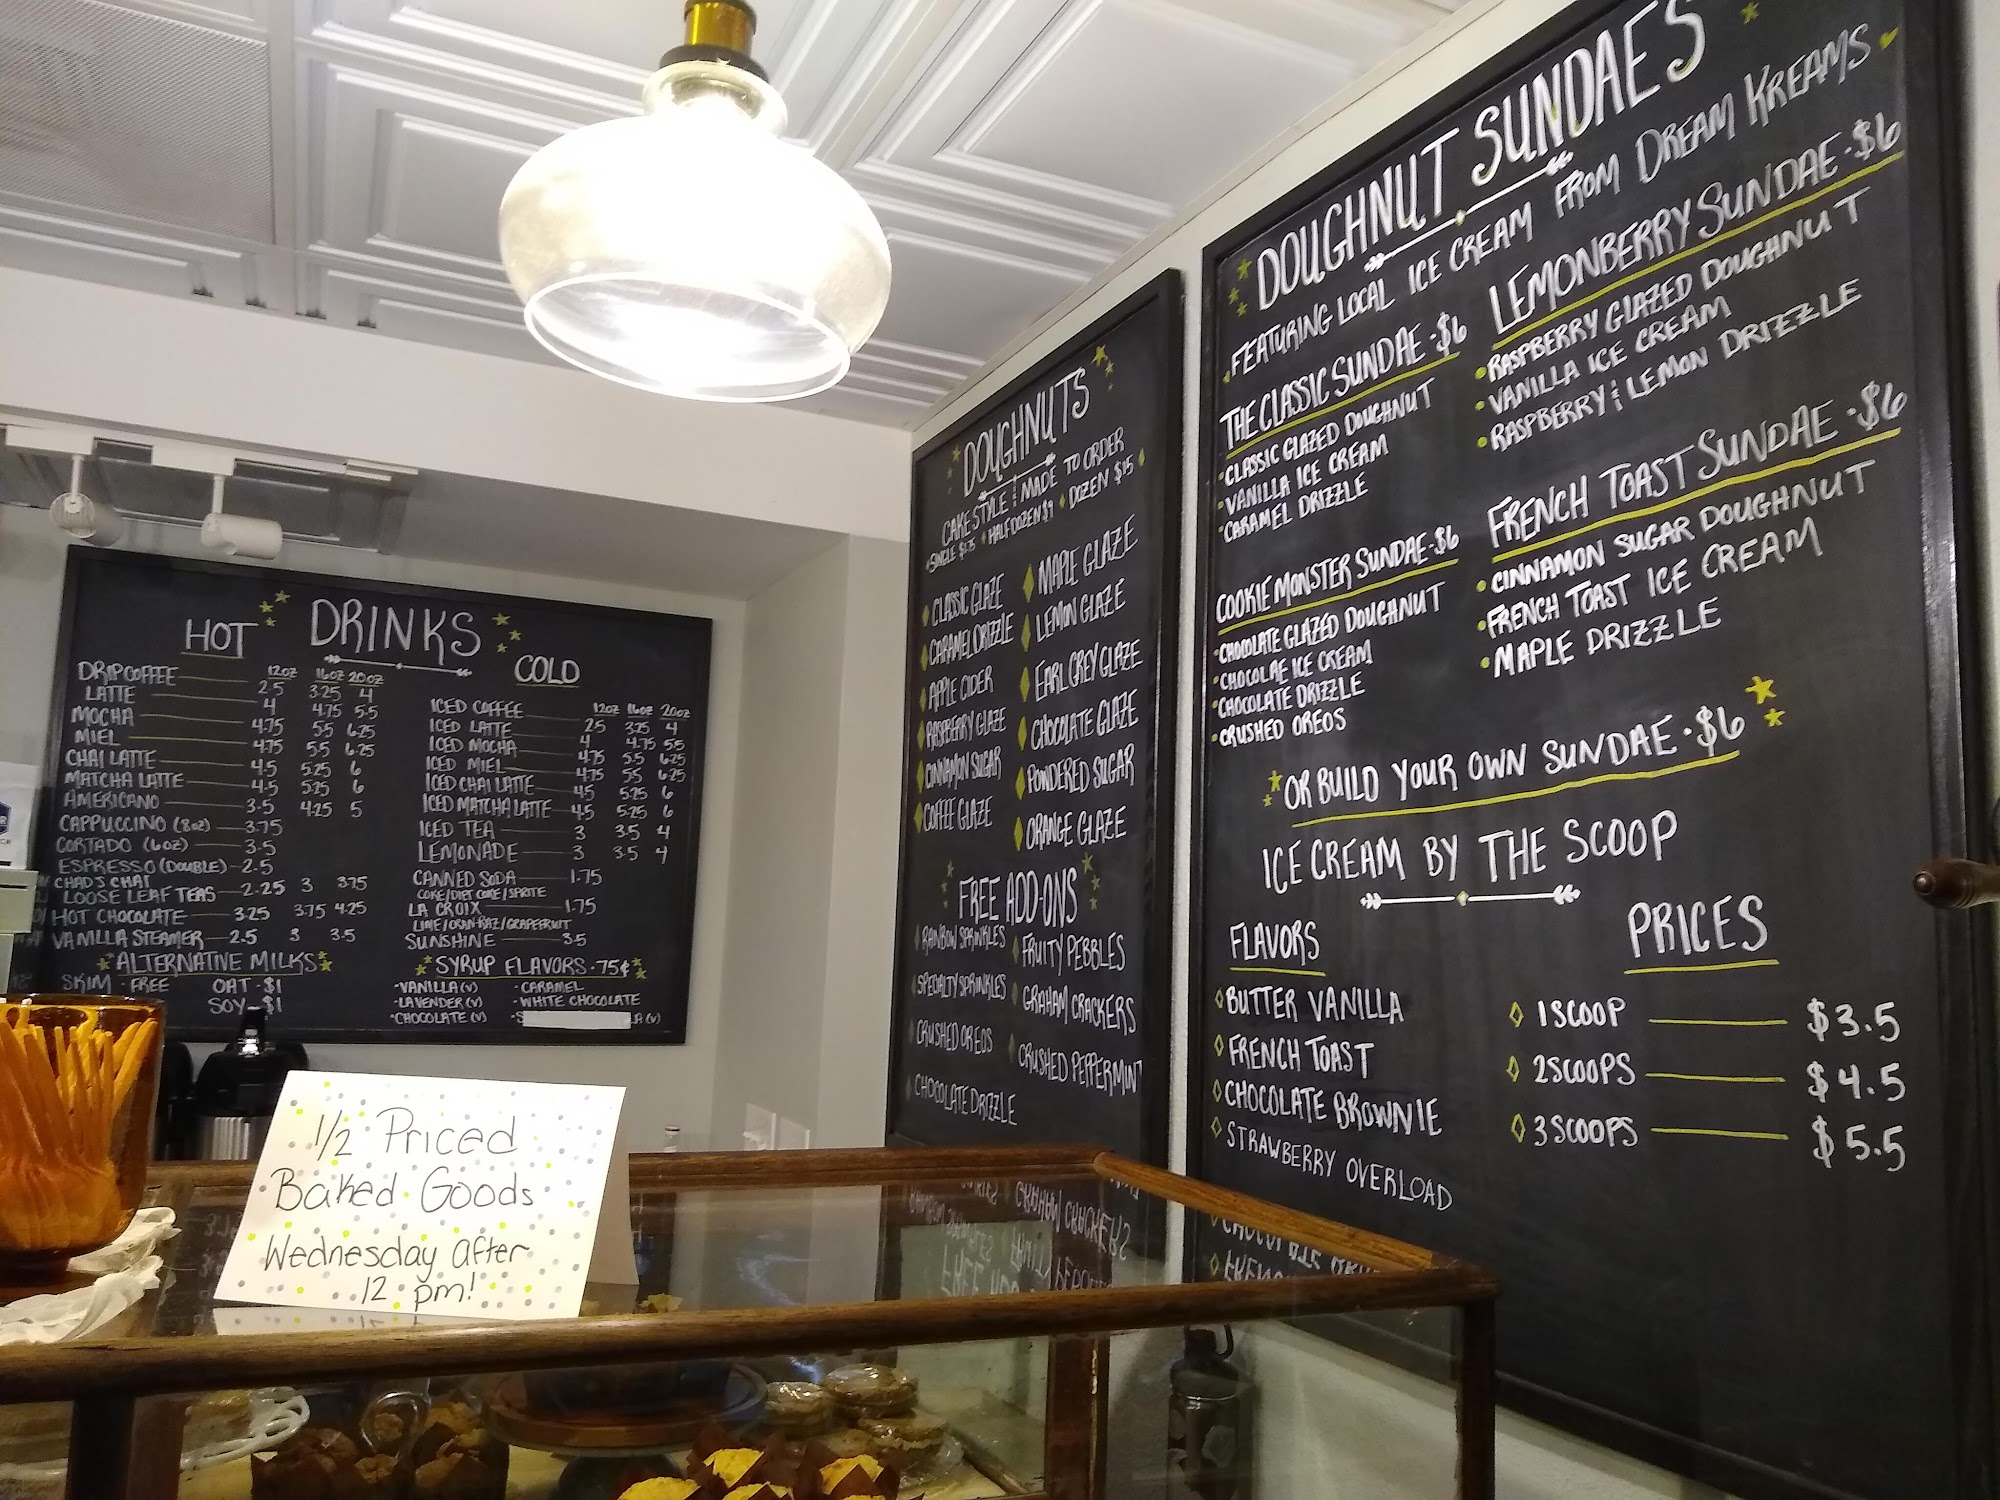 DRINKS
HOT
12oz 16oz 20oz
DRIP COFFEE 2.5 3.25 4
LATTE 4 4.75 5.5
MOCHA 4.75 5.5 6.25
MIEL 4.75 5.5 6.25
CHAI LATTE 4.5 5.25 6
MATCHA LATTE 4.5 5.25 6
AMERICANO 3.5 4.25 5
CAPPUCCINO (8oz) 3.75
CORTADO (6oz) 3.5
ESPRESSO (DOUBLE) 2.5
CHAD'S CHAI
LOOSE LEAF TEAS 2.25 3 3.75
HOT CHOCOLATE 3.25 3.75 4.25
VANILLA STEAMER 2.5 3 3.5
ALTERNATIVE MILKS
SKIM - FREE OAT - $1
SOY - $1
COLD
12oz 16oz 20oz
ICED COFFEE 2.5 3.25 4
ICED LATTE 4 4.75 5.5
ICED MOCHA 4.75 5.5 6.25
ICED MIEL 4.75 5.5 6.25
ICED CHAI LATTE 4.5 5.25 6
ICED MATCHA LATTE 4.5 5.25 6
ICED TEA 3 3.5 4
LEMONADE 3 3.5 4
CANNED SODA 1.75
COKE/DIET COKE/SPRITE
LA CROIX 1.75
LIME/CRAN-RAZ/GRAPEFRUIT
SUNSHINE 3.5
SYRUP FLAVORS · 75¢
-VANILLA (V) - CARAMEL
-LAVENDER (V) - WHITE CHOCOLATE
-CHOCOLATE (V)
1/2 Priced
Baked Goods
Wednesday after
12 pm!
DOUGHNUTS
CAKE STYLE & MADE TO ORDER
SINGLE $1.75 HALF DOZEN $9 DOZEN $15
CLASSIC GLAZE
CARAMEL DRIZZLE
APPLE CIDER
RASPBERRY GLAZE
CINNAMON SUGAR
COFFEE GLAZE
MAPLE GLAZE
LEMON GLAZE
EARL GREY GLAZE
CHOCOLATE GLAZE
POWDERED SUGAR
ORANGE GLAZE
FREE ADD-ONS
RAINBOW SPRINKLES
SPECIALTY SPRINKLES
CRUSHED OREOS
CHOCOLATE DRIZZLE
FRUITY PEBBLES
GRAHAM CRACKERS
CRUSHED PEPPERMINT
DOUGHNUT SUNDAES
FEATURING LOCAL ICE CREAM FROM DREAM KREAMS
THE CLASSIC SUNDAE · $6
• CLASSIC GLAZED DOUGHNUT
• VANILLA ICE CREAM
• CARAMEL DRIZZLE
COOKIE MONSTER SUNDAE · $6
• CHOCOLATE GLAZED DOUGHNUT
• CHOCOLAE ICE CREAM
• CHOCOLATE DRIZZLE
• CRUSHED OREOS
LEMONBERRY SUNDAE · $6
• RASPBERRY GLAZED DOUGHNUT
• VANILLA ICE CREAM
• RASPBERRY & LEMON DRIZZLE
FRENCH TOAST SUNDAE · $6
• CINNAMON SUGAR DOUGHNUT
• FRENCH TOAST ICE CREAM
• MAPLE DRIZZLE
OR BUILD YOUR OWN SUNDAE · $6
ICE CREAM BY THE SCOOP
FLAVORS
BUTTER VANILLA
FRENCH TOAST
CHOCOLATE BROWNIE
STRAWBERRY OVERLOAD
PRICES
1 SCOOP $3.5
2 SCOOPS $4.5
3 SCOOPS $5.5